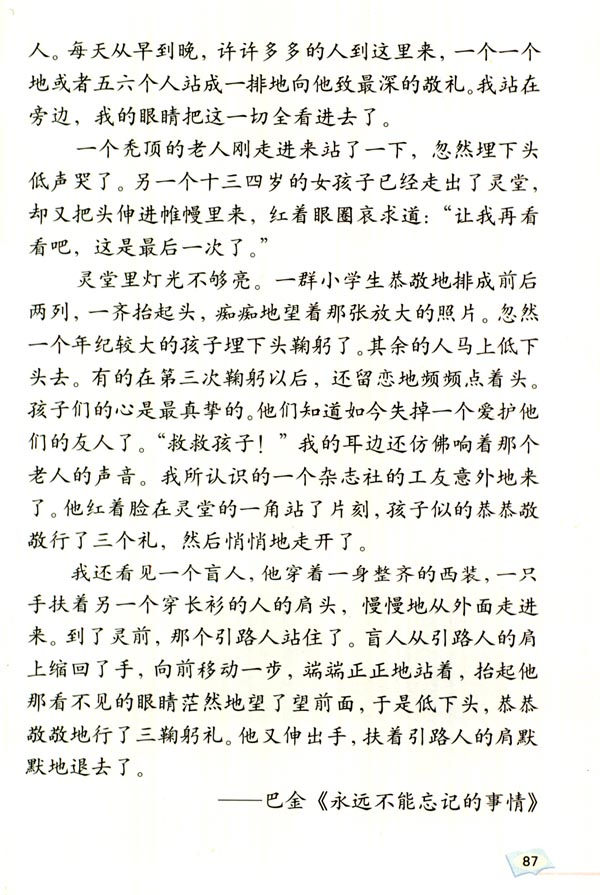 人。每天从早到晚，许许多多的人到这里来，一个一个
地或者五六个人站成一排地向他致最深的敬礼。我站在
旁边，我的眼睛把这一切全看进去了。
一个秃顶的老人刚走进来站了一下，忽然埋下头
低声哭了。另一个十三四岁的女孩子已经走出了灵堂，
却又把头伸进帷幔里来，红着眼圈哀求道：“让我再看
看吧，这是最后一次了。”
灵堂里灯光不够亮。一群小学生恭敬地排成前后
两列，一齐抬起头，痴痴地望着那张放大的照片。忽然
一个年纪较大的孩子埋下头鞠躬了。其余的人马上低下
头去。有的在第三次鞠躬以后，还留恋地频频点着头。
孩子们的心是最真挚的。他们知道如今失掉一个爱护他
们的友人了。“救救孩子！”我的耳边还仿佛响着那个
老人的声音。我所认识的一个杂志社的工友意外地来
了。他红着脸在灵堂的一角站了片刻，孩子似的恭恭敬
敬行了三个礼，然后悄悄地走开了。
我还看见一个盲人，他穿着一身整齐的西装，一只
手扶着另一个穿长衫的人的肩头，慢慢地从外面走进
来。到了灵前，那个引路人站住了。盲人从引路人的肩
上缩回了手，向前移动一步，端端正正地站着，抬起他
那看不见的眼睛茫然地望了望前面，于是低下头，恭恭
敬敬地行了三鞠躬礼。他又伸出手，扶着引路人的肩默
默地退去了。
——巴金《永远不能忘记的事情》
87